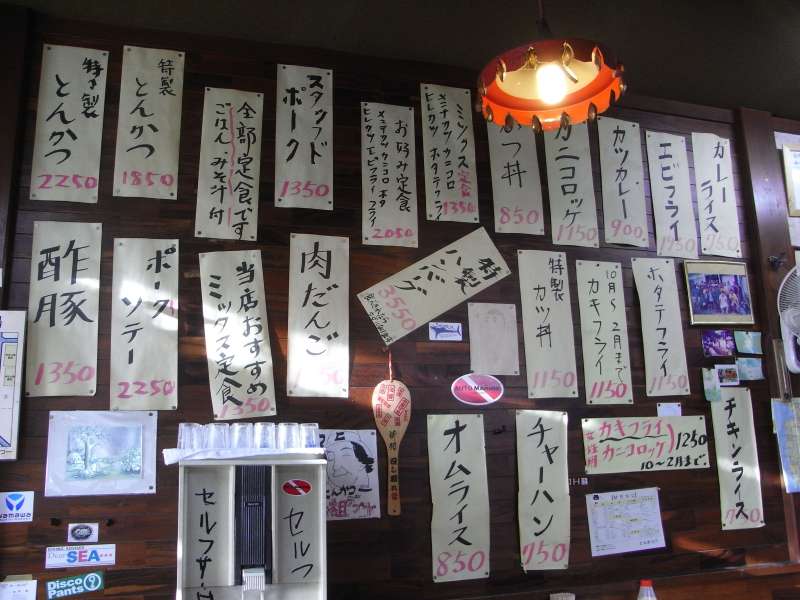 特製
とんかつ
2250
特製
とんかつ
1850
全部定食です
ごはんみそ汁付
スタッフド
ポーク
1350
お好み定食
メンチカツ カニコロ ホタテ
ヒレカツ エビフライ
2050
ミックス定食
メンチカツ カニコロ
ヒレカツ ホタテフライ
1350
カツ丼
850
カニコロッケ
1150
カツカレー
900
エビフライ
カレー
ライス
酢豚
1350
ポーク
ソテー
2250
当店おすすめ
ミックス定食
1350
肉だんご
特製
ハンバーグ
特製
カツ丼
1150
10月〜2月まで
カキフライ
1150
ホタテフライ
1150
オムライス
850
チャーハン
750
女性用
カキフライ
カニコロッケ
1250
10〜2月まで
チキンライス
セルフサ
セルフ
AUTO
YAMAWA
SEA
Disco
Pants